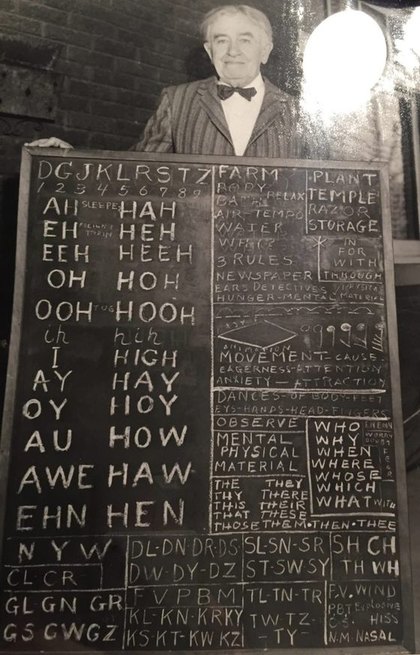 DGJKLRSTZ
1 2 3 4 5 6 7 8 9
AH SLEEPS HAH
EH HEH
EEH HEEH
OH HOH
OOH TUG HOOH
ih hih
I HIGH
AY HAY
OY HOY
AU HOW
AWE HAW
EHN HEN
FARM
BODY
RELAX
AIR-TEMPO
WATER
WHY?
3 RULES
NEWSPAPER
EARS DETECTIVES
HUNGER-MENTAL
PLANT
TEMPLE
RAZOR
STORAGE
IN
FOR
WITH
THROUGH
PHYSICAL
MATERIAL
ANIMATION
MOVEMENT-CAUSE
EAGERNESS-ATTENTION
ANXIETY-ATTRACTION
DANCES-OF-BODY-FEET
EYS-HANDS-HEAD-FINGERS
OBSERVE
MENTAL
PHYSICAL
MATERIAL
WHO ENEMY
WHY WORRY
WHEN DOUBT
WHERE
WHOSE
WHICH
WHAT WITH
THE THEY
THY THERE
THIS THEIR
THAT THESE
THOSE THEM·THEN·THEE
N Y W
CL-CR
GL GN GR
GS GW GZ
DL-DN-DR-DS
DW-DY-DZ
F V P B M
KL-KN-KR KY
KS-KT-KW KZ
SL-SN-SR
ST-SW SY
TL-TN-TR
TW TZ-
-TY-
SH CH
TH WH
F.V. WIND
P.B.T. Explosive
C.S. HISS
N·M· NASAL